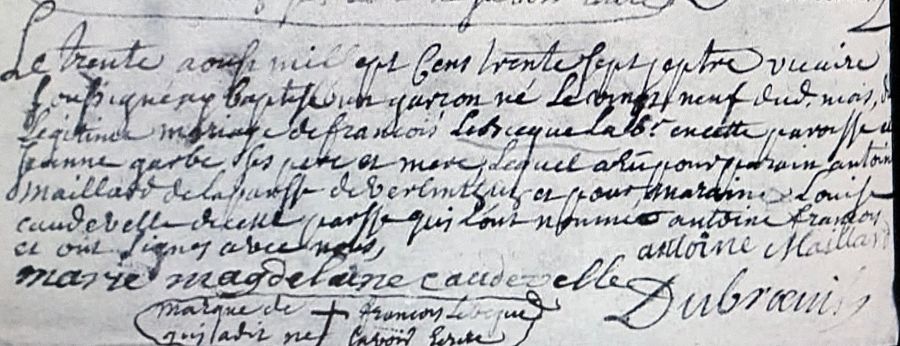 Le trente aoust mil sept cens trente sept je ptre vicaire
soussigné ay Baptisé un garçon né le vingt neuf dud. mois, de
légitime mariage de françois Lebecque lab.r en cette paroisse et
jeanne garbe ses pere et mere, lequel a eü pour parain antoine
Maillard de la parsse de Verlincthun et pour maraine Louise
caudevelle de cette parsse qui l'ont nommé antoine françois
et ont signés avec nous,
antoine Maillard
marie magdelaine caudevelle
marque de + françois Lebecque
qui a dit ne savoir Ecrire